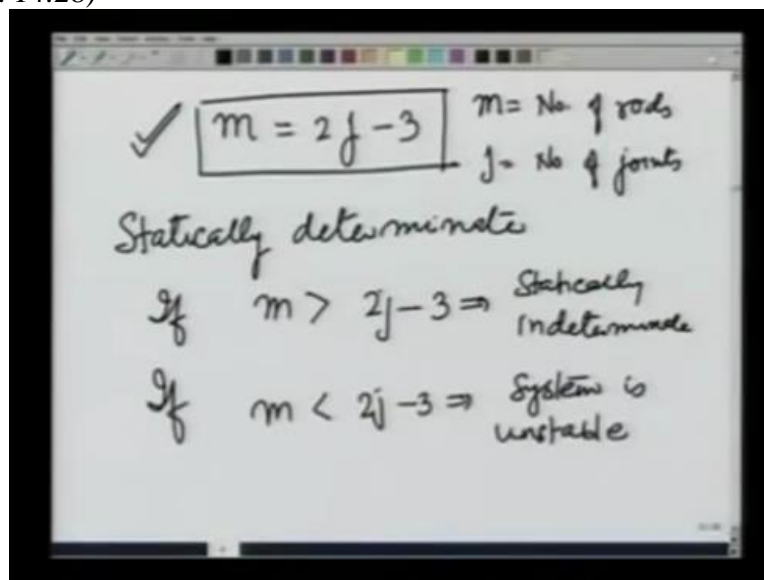 14:28)
m = 2j - 3
m = No of rods
j = No of joints
Statically determinate
If m > 2j - 3 ⇒ Statically Indeterminate
If m < 2j - 3 ⇒ System is unstable